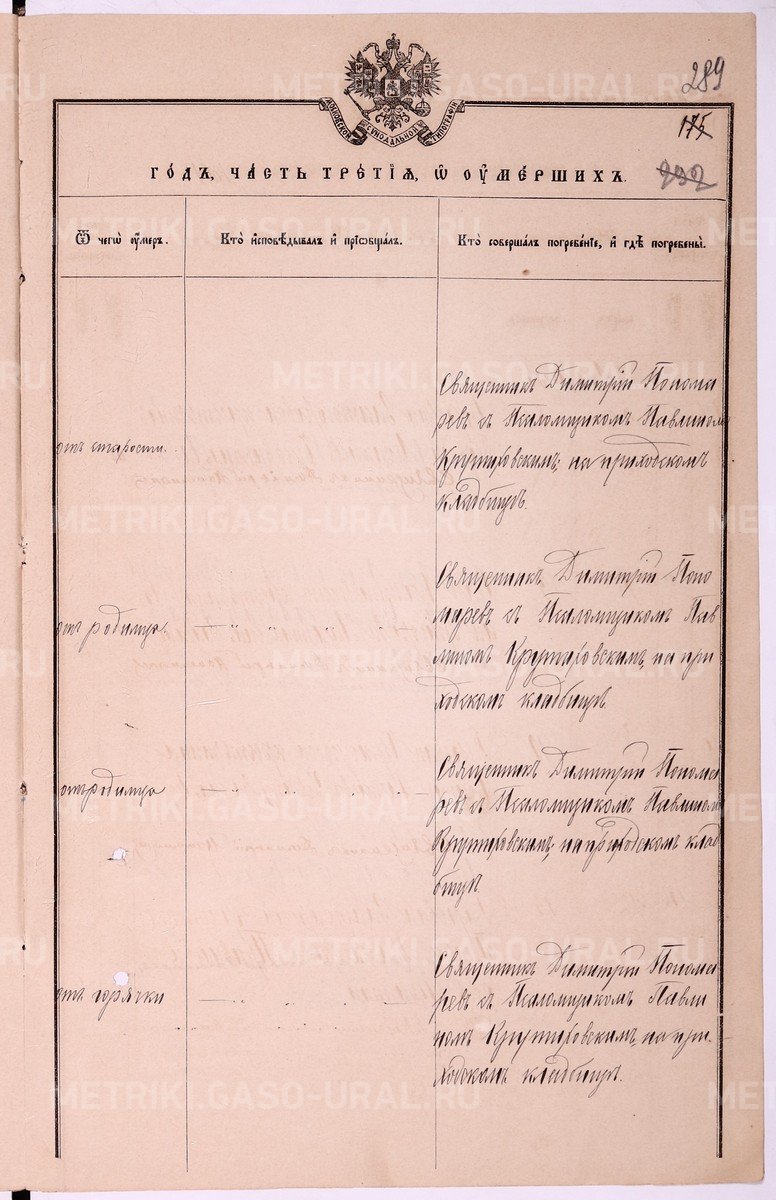 289
175
232
МОСКОВСКОЙ СѴНОДАЛЬНОЙ ТИПОГРАФІИ
ГОДЪ, ЧАСТЬ ТРЕТІЯ, Ѡ ОУМЕРШИХЪ.
Ѿ чегѡ оумеръ.
Кто исповѣдывалъ и пріѡбщалъ.
Кто совершалъ погребеніе, и гдѣ погребены.
отъ старости.
Священникъ Димитрій Понома
ревъ съ Псаломщикомъ Павлиномъ
Крутиховскимъ, на приходскомъ
кладбищѣ.
отъ родимца.
Священникъ Димитрій Поно
маревъ съ Псаломщикомъ Пав
линомъ Крутиховскимъ, на при
ходскомъ кладбищѣ.
отъ родимца
Священникъ Димитрій Понома
ревъ съ Псаломщикомъ Павлиномъ
Крутиховскимъ, на приходскомъ клад
бищѣ.
отъ горячки
Священникъ Димитрій Понома
ревъ съ Псаломщикомъ Павли
номъ Крутиховскимъ, на при-
ходскомъ кладбищѣ.
METRIKI.GASO-URAL.RU